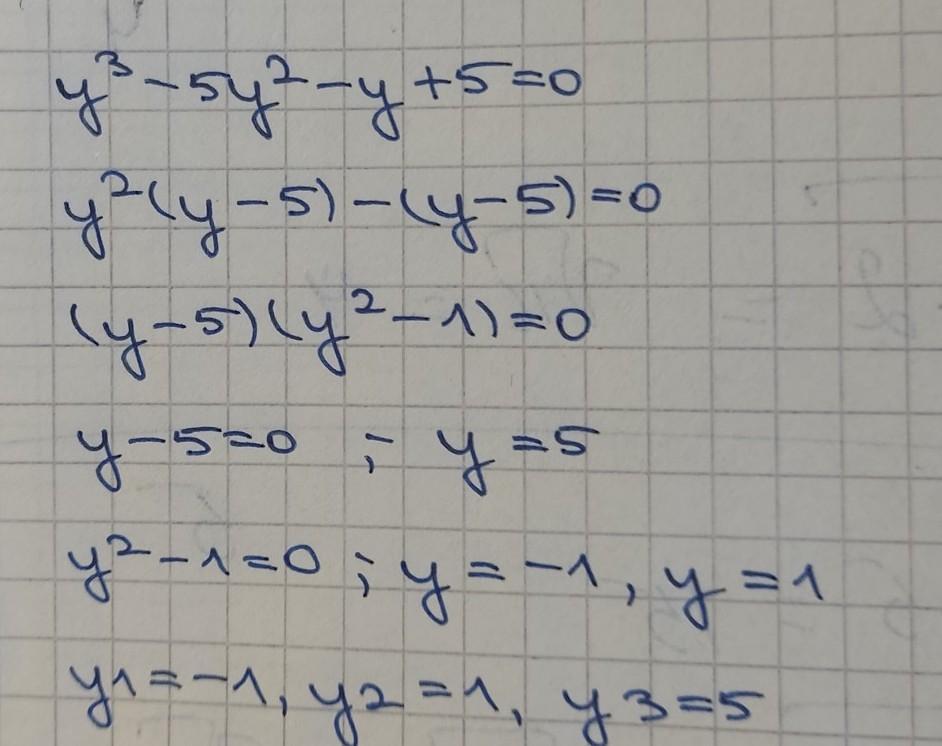 y³ - 5y² - y + 5 = 0
y²(y - 5) - (y - 5) = 0
(y - 5)(y² - 1) = 0
y - 5 = 0 ; y = 5
y² - 1 = 0 ; y = -1, y = 1
y1 = -1, y2 = 1, y3 = 5